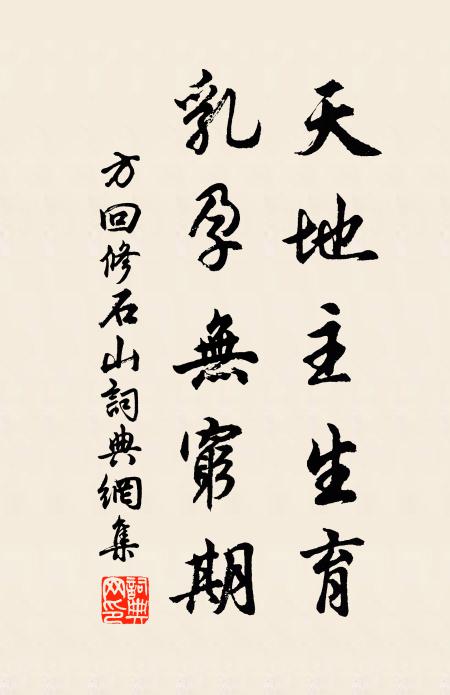 天地主生育
乳孕無窮期
方回修石山詞典網集
詞典网印